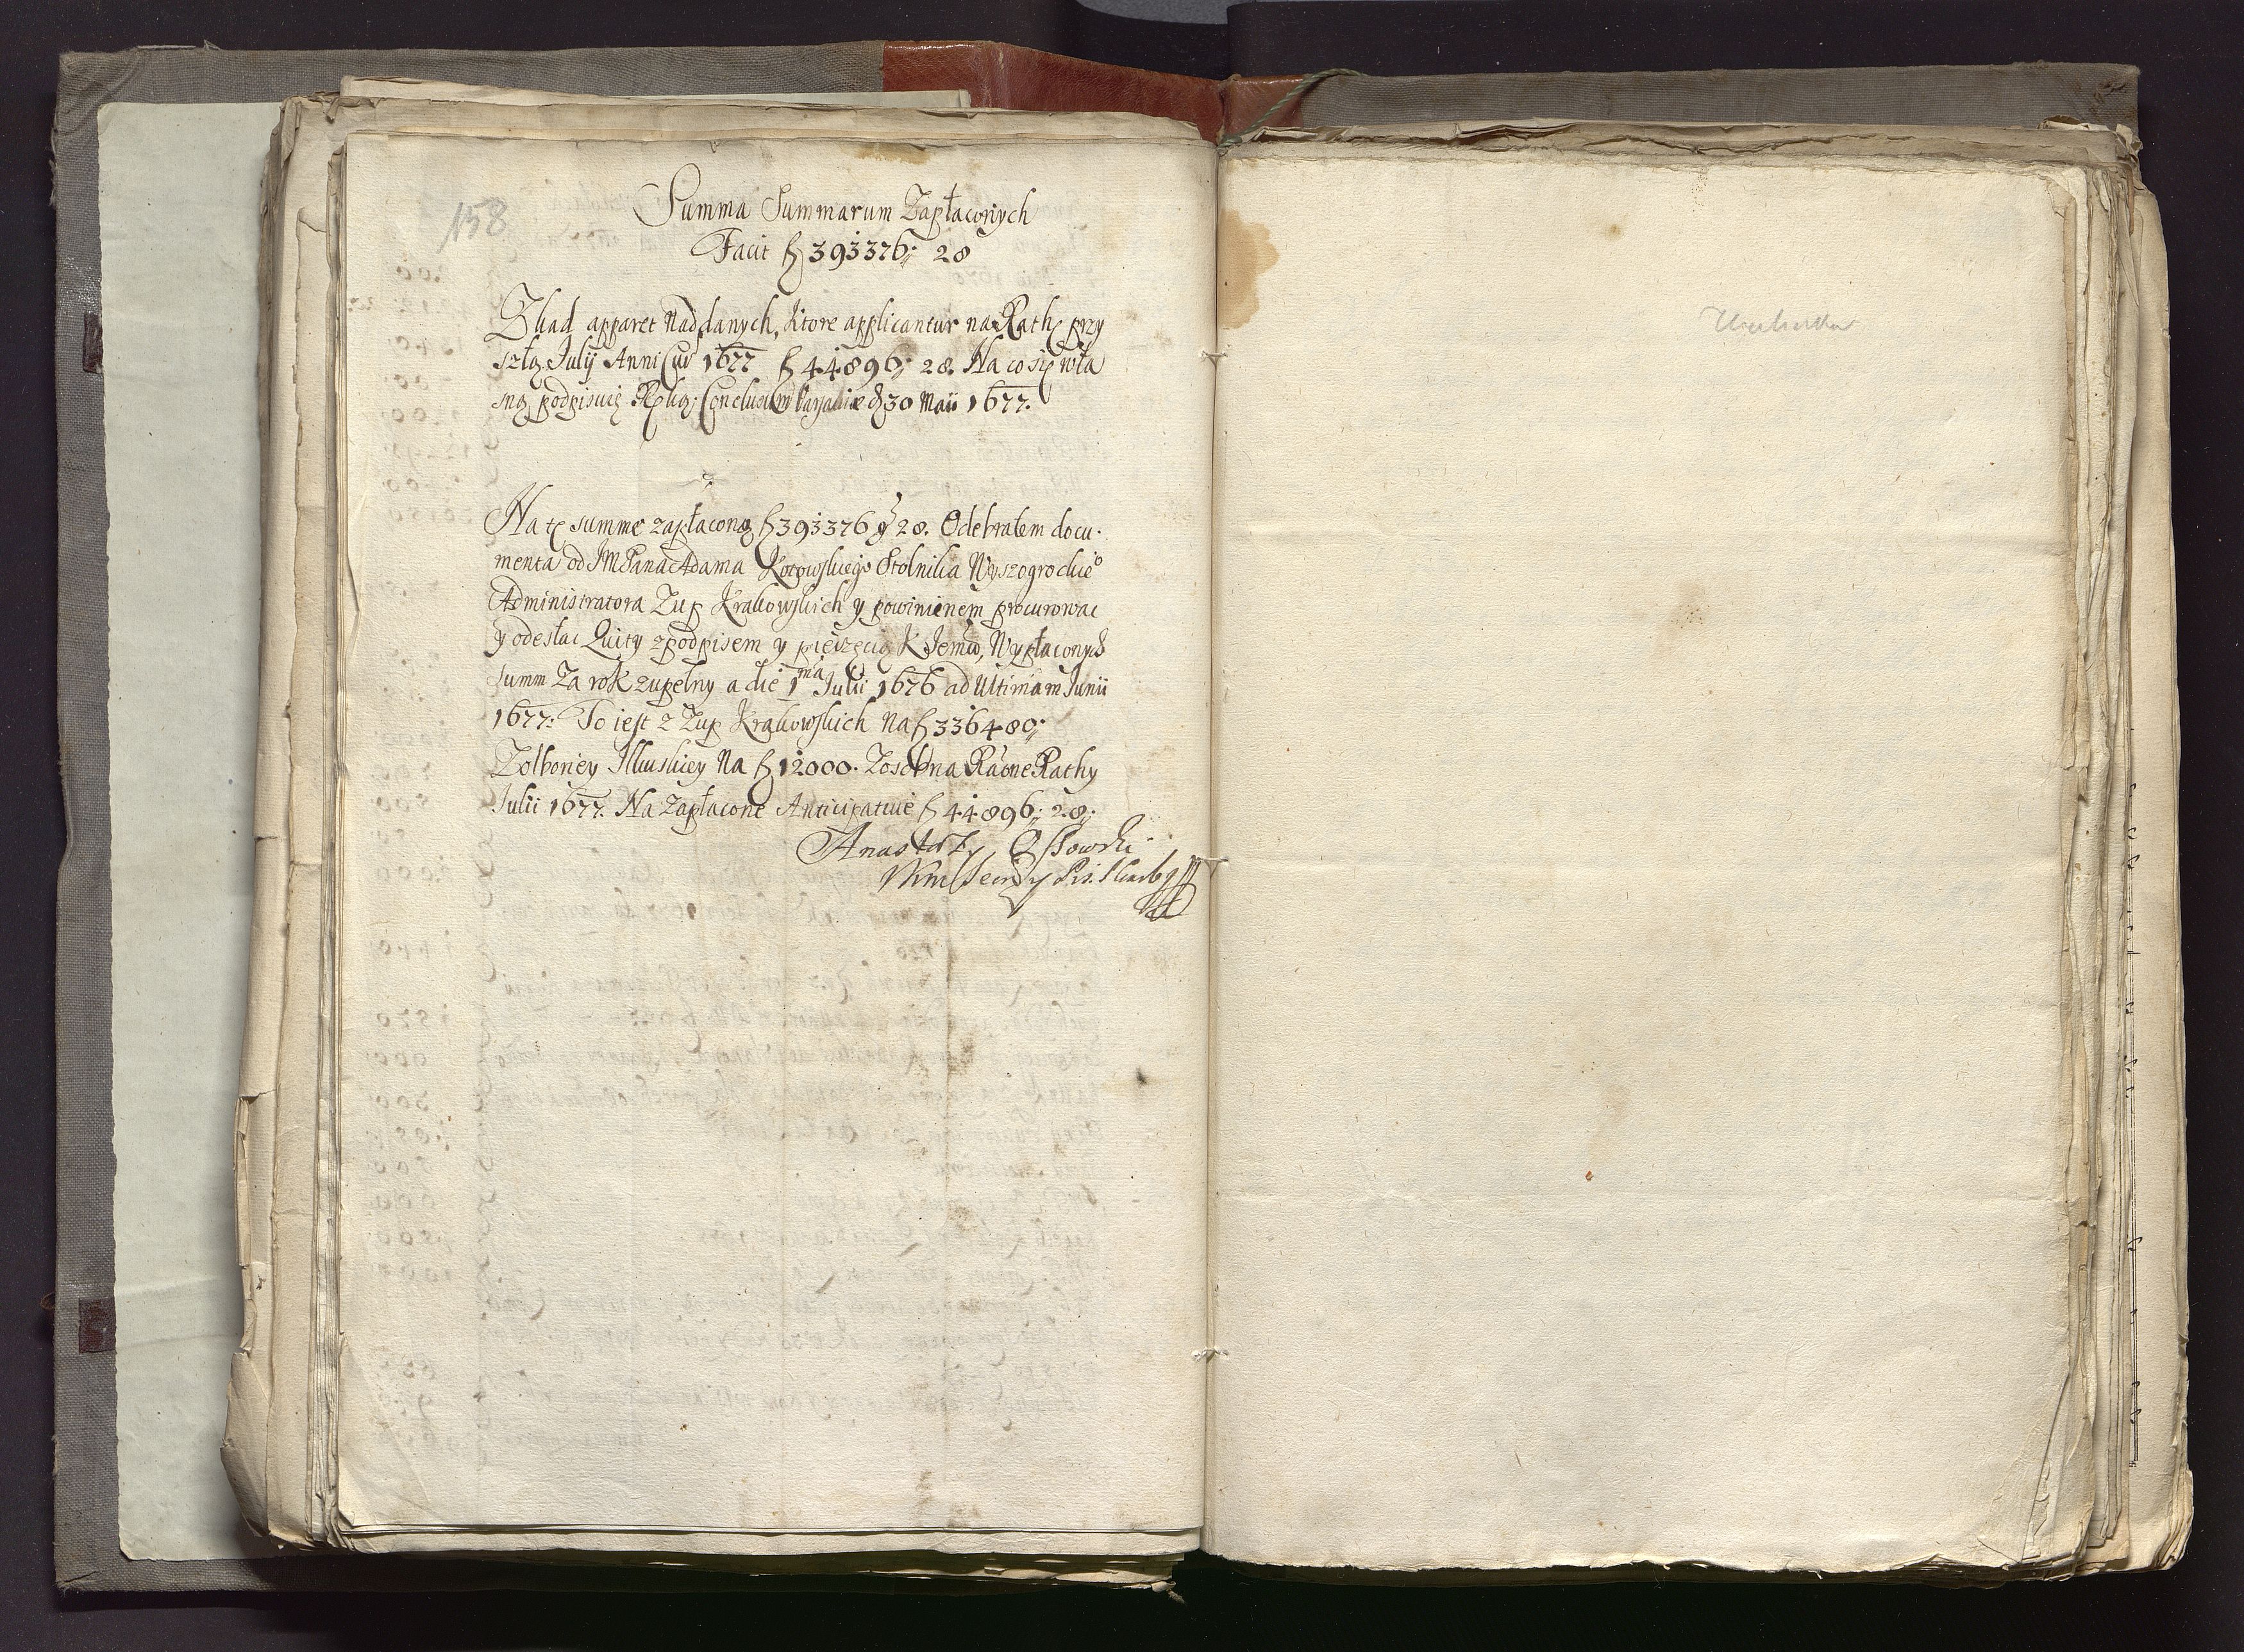 158
Summa Summarum Zapłaconych
Facit f 393376: 28
Zkąd apparet Naddanych, ktore applicantur na Rathę przy
szłą Julij Anni Cur 1677 f 44896: 28. Na co się wła
sną podpisuię Ręką. Conclusum die 30 Maii 1677.
Na tę summe zapłaconą f 393376 g 28. Odebrałem docu-
menta od JMPana Adama Kotowskiego Stolnika Wyszogrockieº
Administratora Zup Krakowskich y powinienem procurowac
y odesłac Quity z podpisem y pieczęcią K Jemu, Wypłaconych
summ Za rok zupełny a die 1ma Julii 1676 ad Ultimam Junii
1677: To iest z Zup Krakowskich Na f 336480:
Z Olborieÿ Ilkuskiey Na f 12000. Zosobna Rathy
Julii 1677. Na zapłacone Anticipative f 44896: 28:
Anastazy